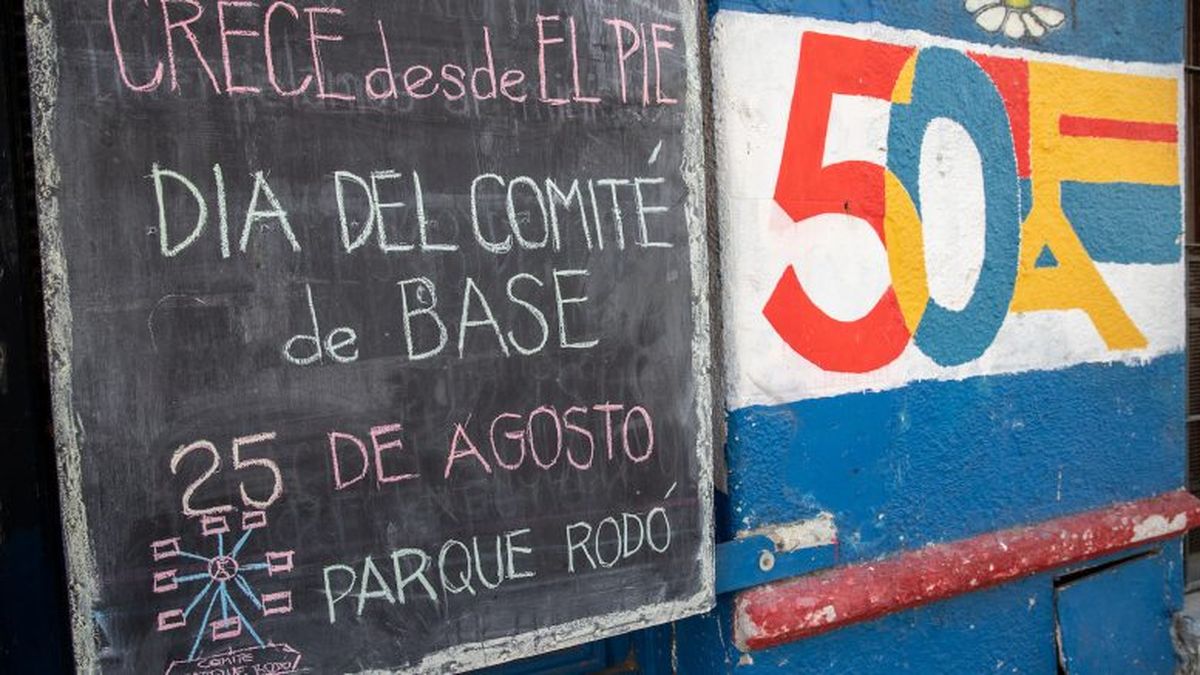 CRECE desde EL PIE
DIA DEL COMITÉ
de BASE
25 DE AGOSTO
PARQUE RODÓ
COMITÉ
PARQUE RODO
50 FA